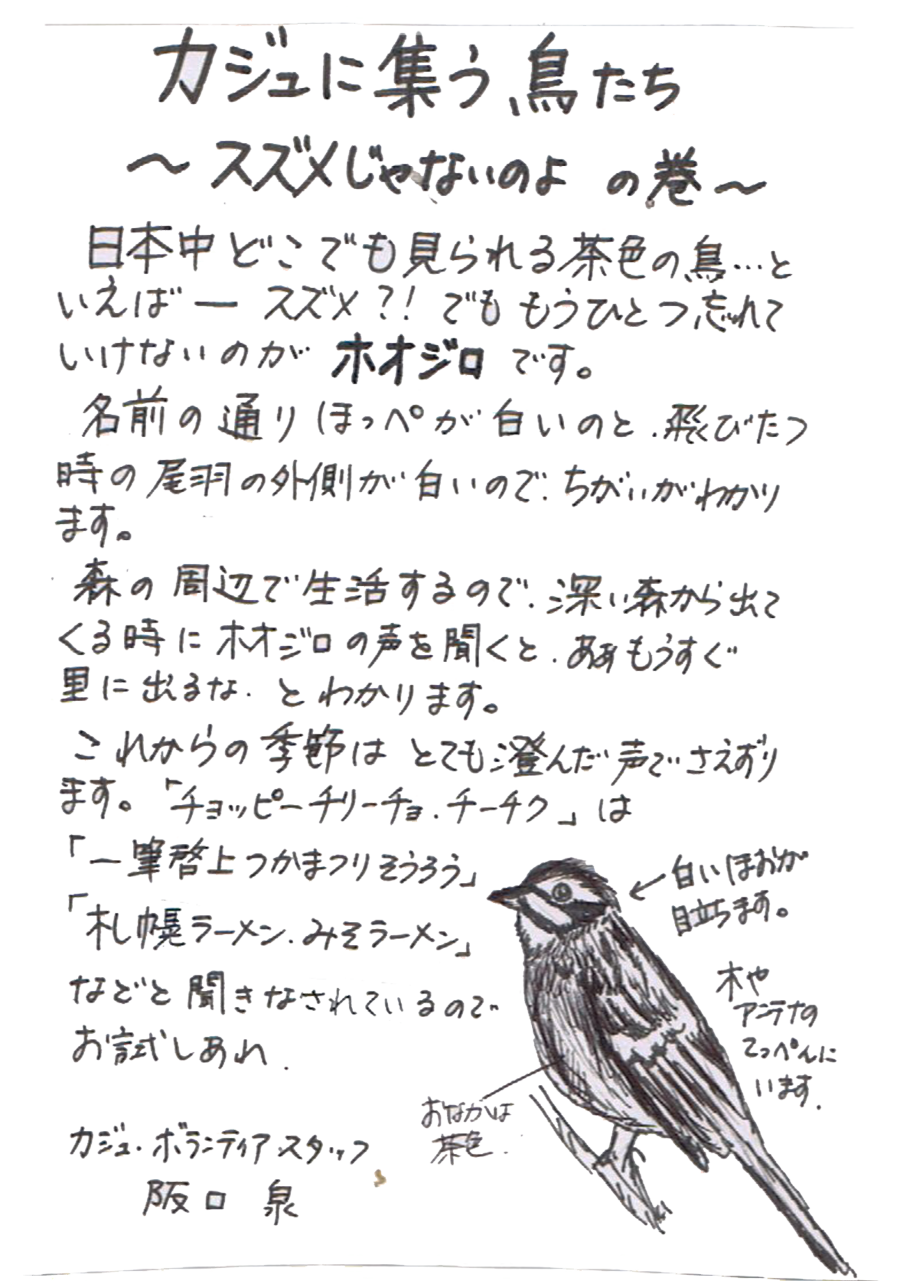 カジュに集う鳥たち
〜スズメじゃないのよ の巻〜
日本中どこでも見られる茶色の鳥…と
いえば― スズメ?! でももうひとつ忘れて
いけないのが ホオジロ です。
名前の通りほっぺが白いのと、飛びたつ
時の尾羽の外側が白いので、ちがいがわかり
ます。
森の周辺で生活するので、深い森から出て
くる時にホオジロの声を聞くと、あぁもうすぐ
里に出るな、とわかります。
これからの季節は とても澄んだ声でさえずり
ます。「チョッピーチリーチョ、チーチク」は
「一筆啓上つかまつりそうろう」
「札幌ラーメン、みそラーメン」
などと聞きなされているので
お試しあれ.
カジュ・ボランティアスタッフ
阪口 泉
←白いほおが
目立ちます。
木や
アンテナの
てっぺんに
います.
おなかは
茶色.